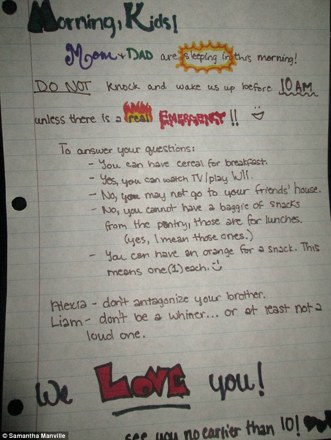 Morning, Kids!
Mom + DAD are sleeping in this morning!
DO NOT knock and wake us up before 10AM
unless there is a real EMERGENCY!!
To answer your questions:
- You can have cereal for breakfast.
- Yes, you can watch TV/play Wii.
- No, you may not go to your friends' house.
- No, you cannot have a baggie of snacks
from the pantry, those are for lunches.
(yes, I mean those ones.)
- You can have an orange for a snack. This
means one (1) each.
Alexia - don't antagonize your brother.
Liam - don't be a whiner... or at least not a
loud one.
We LOVE you!
see you no earlier than 10!
© Samantha Manville